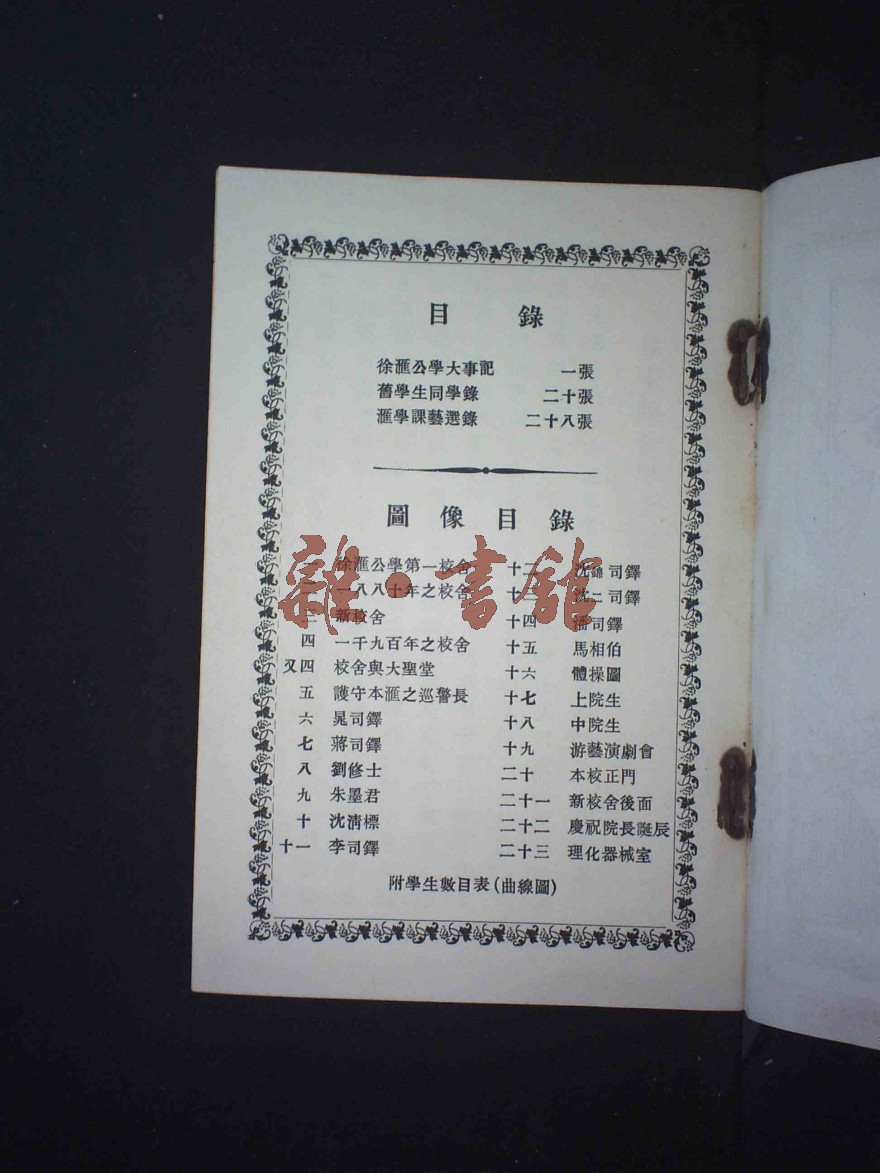 目錄
徐滙公學大事記 一張
舊學生同學錄 二十張
滙學課藝選錄 二十八張
圖像目錄
一 徐滙公學第一校舍
二 一八八十年之校舍
三 新校舍
四 一千九百年之校舍
又四 校舍與大聖堂
五 護守本滙之巡警長
六 晁司鐸
七 蔣司鐸
八 劉修士
九 朱墨君
十 沈淸標
十一 李司鐸
十二 沈錦司鐸
十三 沈二司鐸
十四 潘司鐸
十五 馬相伯
十六 體操圖
十七 上院生
十八 中院生
十九 游藝演劇會
二十 本校正門
二十一 新校舍後面
二十二 慶祝院長誕辰
二十三 理化器械室
附學生數目表(曲線圖)
雜·書館